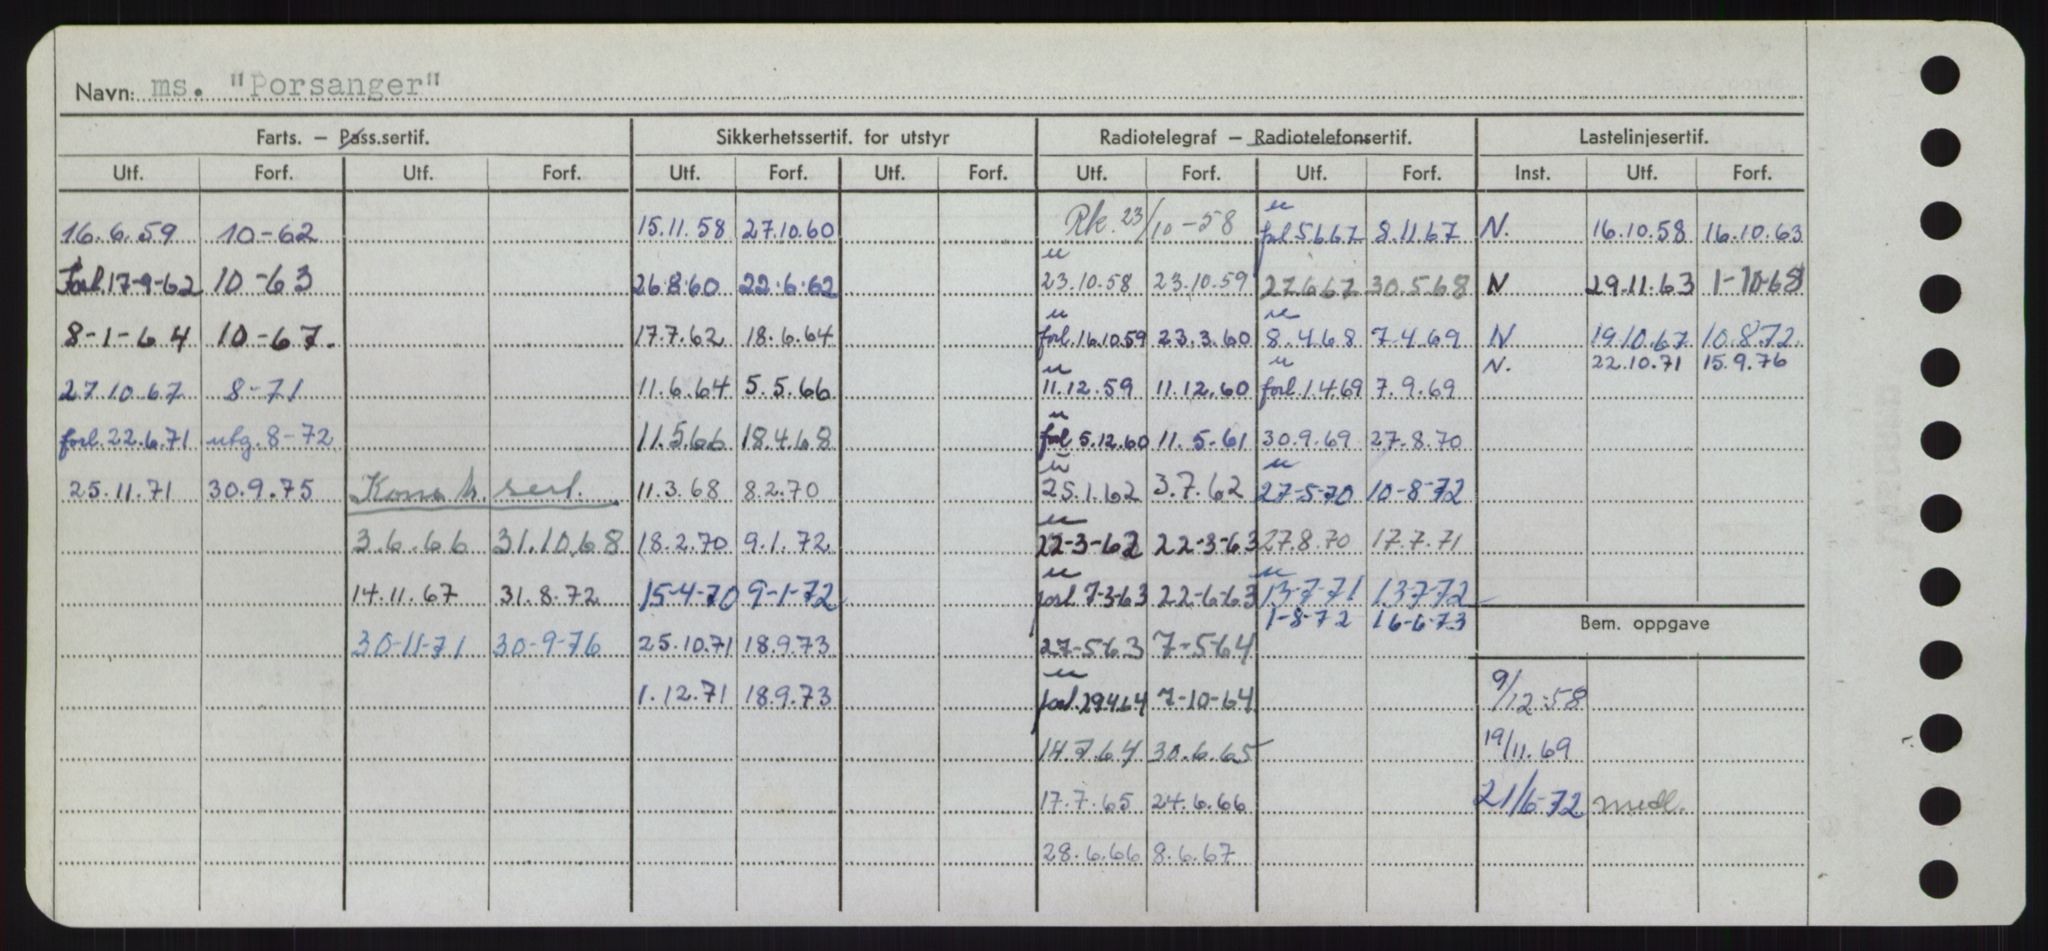 Navn: ms. "Porsanger"
Farts. — Pass.sertif. Sikkerhetssertif. for utstyr Radiotelegraf — Radiotelefonsertif. Lastelinjesertif.
Utf. Forf. Utf. Forf. Utf. Forf. Utf. Forf. Utf. Forf. Utf. Forf. Inst. Utf. Forf.
16.6.59 10-62 15.11.58 27.10.60 Rk. 23/10-58 u forl 5.6.67 8.11.67 N. 16.10.58 16.10.63
forl. 17-9-62 10-63 26.8.60 22.6.62 u 23.10.58 23.10.59 27.6.67 30.5.68 N 29.11.63 1-10-68
8-1-64 10-67. 17.7.62 18.6.64 u forl. 16.10.59 23.3.60 u 8.4.68 7.4.69 N. 19.10.67 10.8.72
N. 22.10.71 15.9.76
27.10.67 8-71 11.6.64 5.5.66 u 11.12.59 11.12.60 u forl. 1.4.69 7.9.69
forl. 22.6.71 utg. 8-72 11.5.66 18.4.68 u forl 5.12.60 11.5.61 30.9.69 27.8.70
25.11.71 30.9.75 sert. 11.3.68 8.2.70 u 25.1.62 3.7.62 u 27-5-70 10-8-72
3.6.66 31.10.68 18.2.70 9.1.72 u 22-3-62 22-3-63 27.8.70 17.7.71
14.11.67 31.8.72 15-4-70 9-1-72 u forl 7-3-63 22-6-63 u 13-7-71 13-7-72
1-8-72 16-6-73
Bem. oppgave
30-11-71 30-9-76 25.10.71 18.9.73 27-5-63 7-5-64
1.12.71 18.9.73 u forl. 29.4.64 7-10-64 9/12-58
14.7.64 30.6.65 19/11.69
17.7.65 24.6.66 21/6-72 medl.
28.6.66 8.6.67